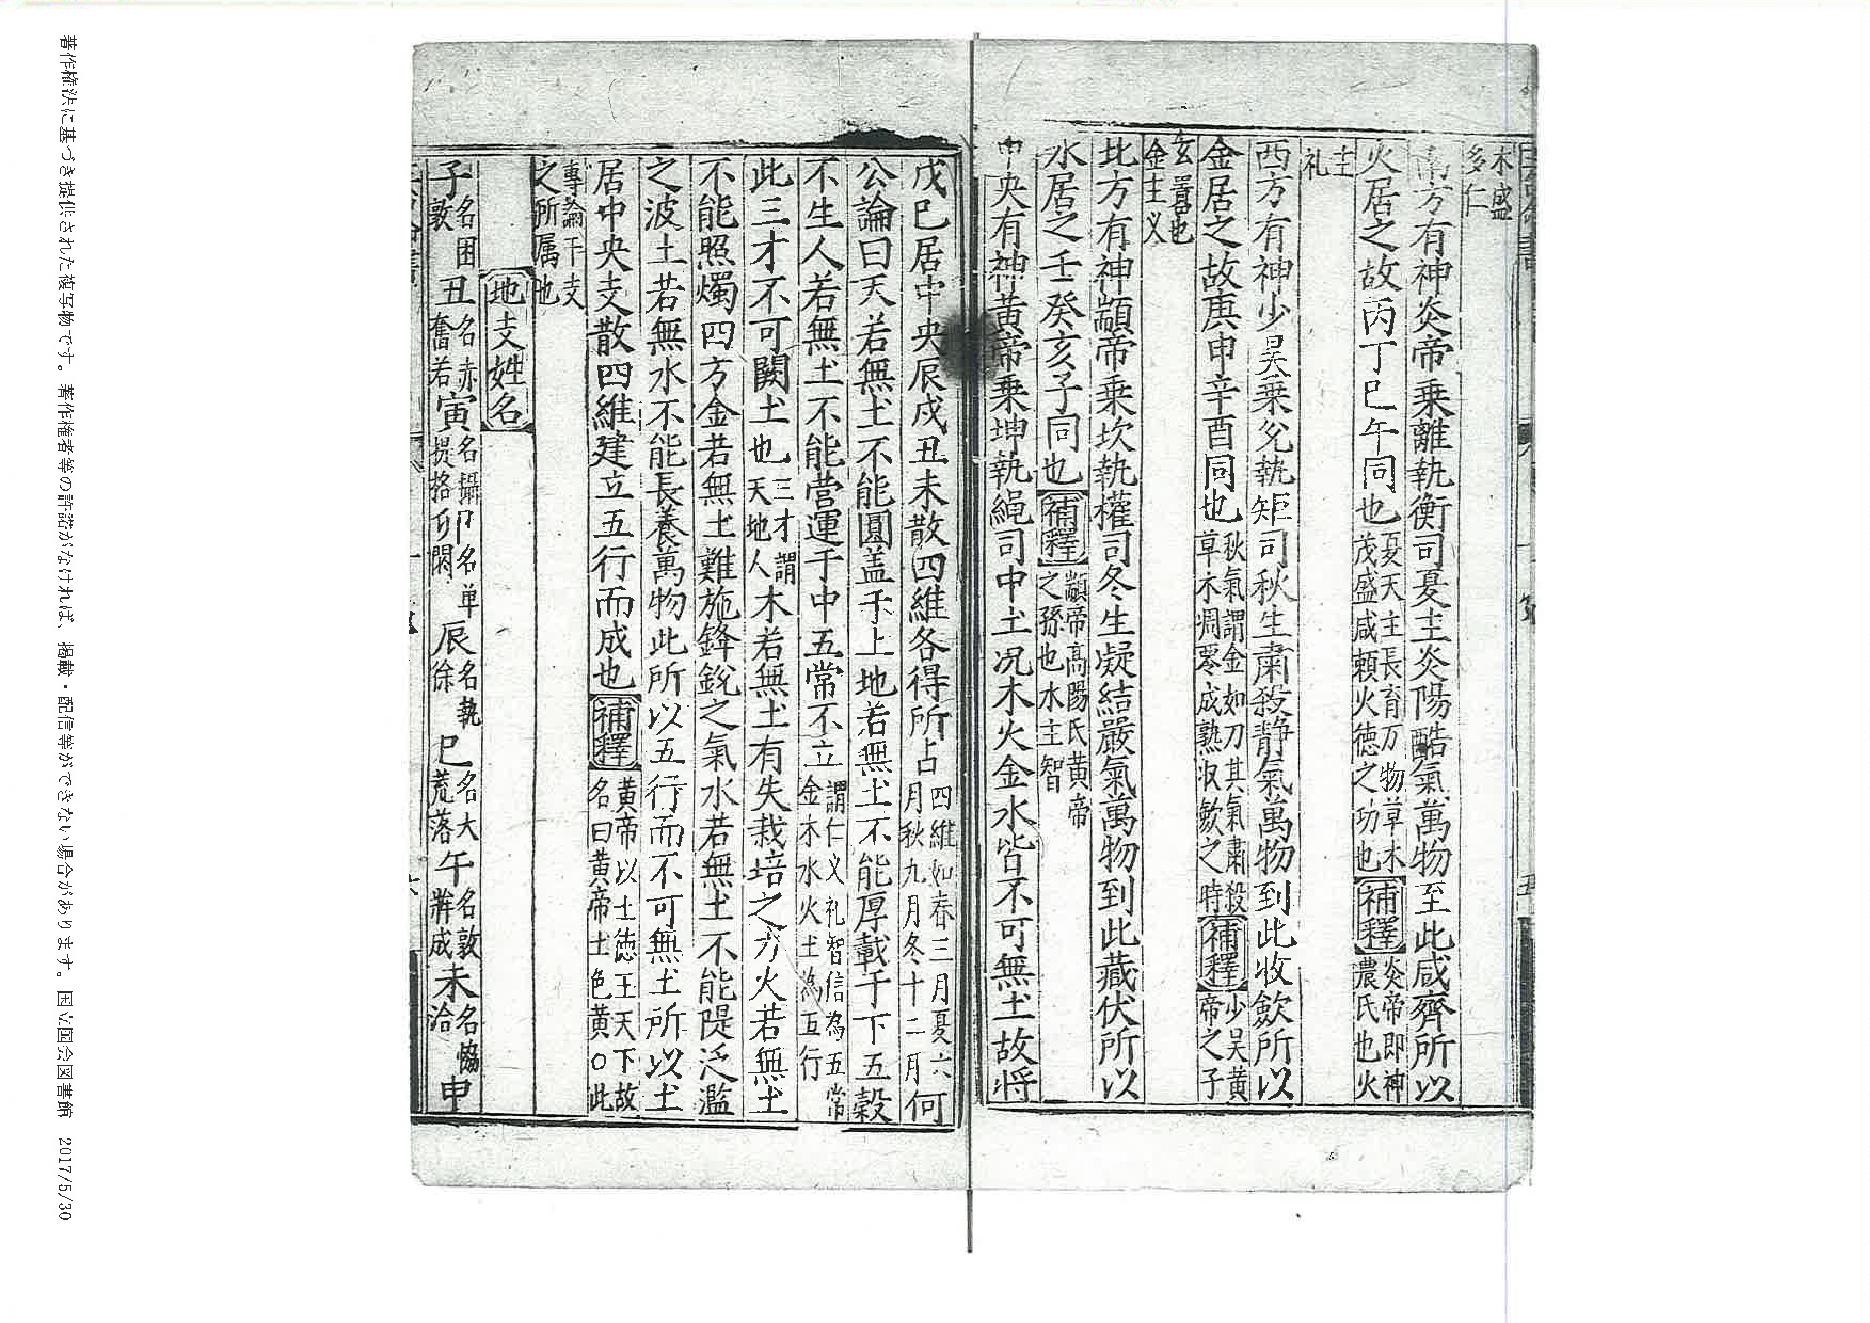 木盛
多仁
南方有神炎帝乗離執衡司夏主炎陽酷氣萬物至此咸齊所以
火居之故丙丁巳午同也夏天主長育万物草木
茂盛咸頼火徳之功也補釋炎帝即神
農氏也火
主
礼
西方有神少昊乗兌執矩司秋生肅殺静氣萬物到此收歛所以
金居之故庚申辛酉同也秋氣謂金如刀其氣肅殺
草木凋零成熟収歛之時補釋少昊黄
帝之子
玄囂也
金主义
北方有神顓帝乗坎執權司冬生凝結嚴氣萬物到此藏伏所以
水居之壬癸亥子同也補釋顓帝高陽氏黄帝
之孫也水主智
中央有神黄帝乗坤執繩司中土况木火金水皆不可無土故将
戊巳居中央辰戌丑未散四維各得所占四維如春三月夏六
月秋九月冬十二月何
公論曰天若無土不能圓盖于上地若無土不能厚載于下五穀
不生人若無土不能營運于中五常不立謂仁义礼智信為五常
金木水火土為五行
此三才不可闕土也三才謂
天地人木若無土有失栽培之力火若無土
不能照燭四方金若無土難施鋒銳之氣水若無土不能隄泛濫
之波土若無水不能長養萬物此所以五行而不可無土所以土
居中央支散四維建立五行而成也補釋黄帝以土徳王天下故
名曰黄帝土色黄○此
專論干支
之所属也
地支姓名
子名困
敦丑名赤
奮若寅名攝
提格卯名単
閼辰名執
徐巳名大
荒落午名敦
牂成未名恊
洽申
著作権法に基づき提供された複写物です。著作権者等の許諾がなければ、掲載・配信等ができない場合があります。国立国会図書館 2017/5/30